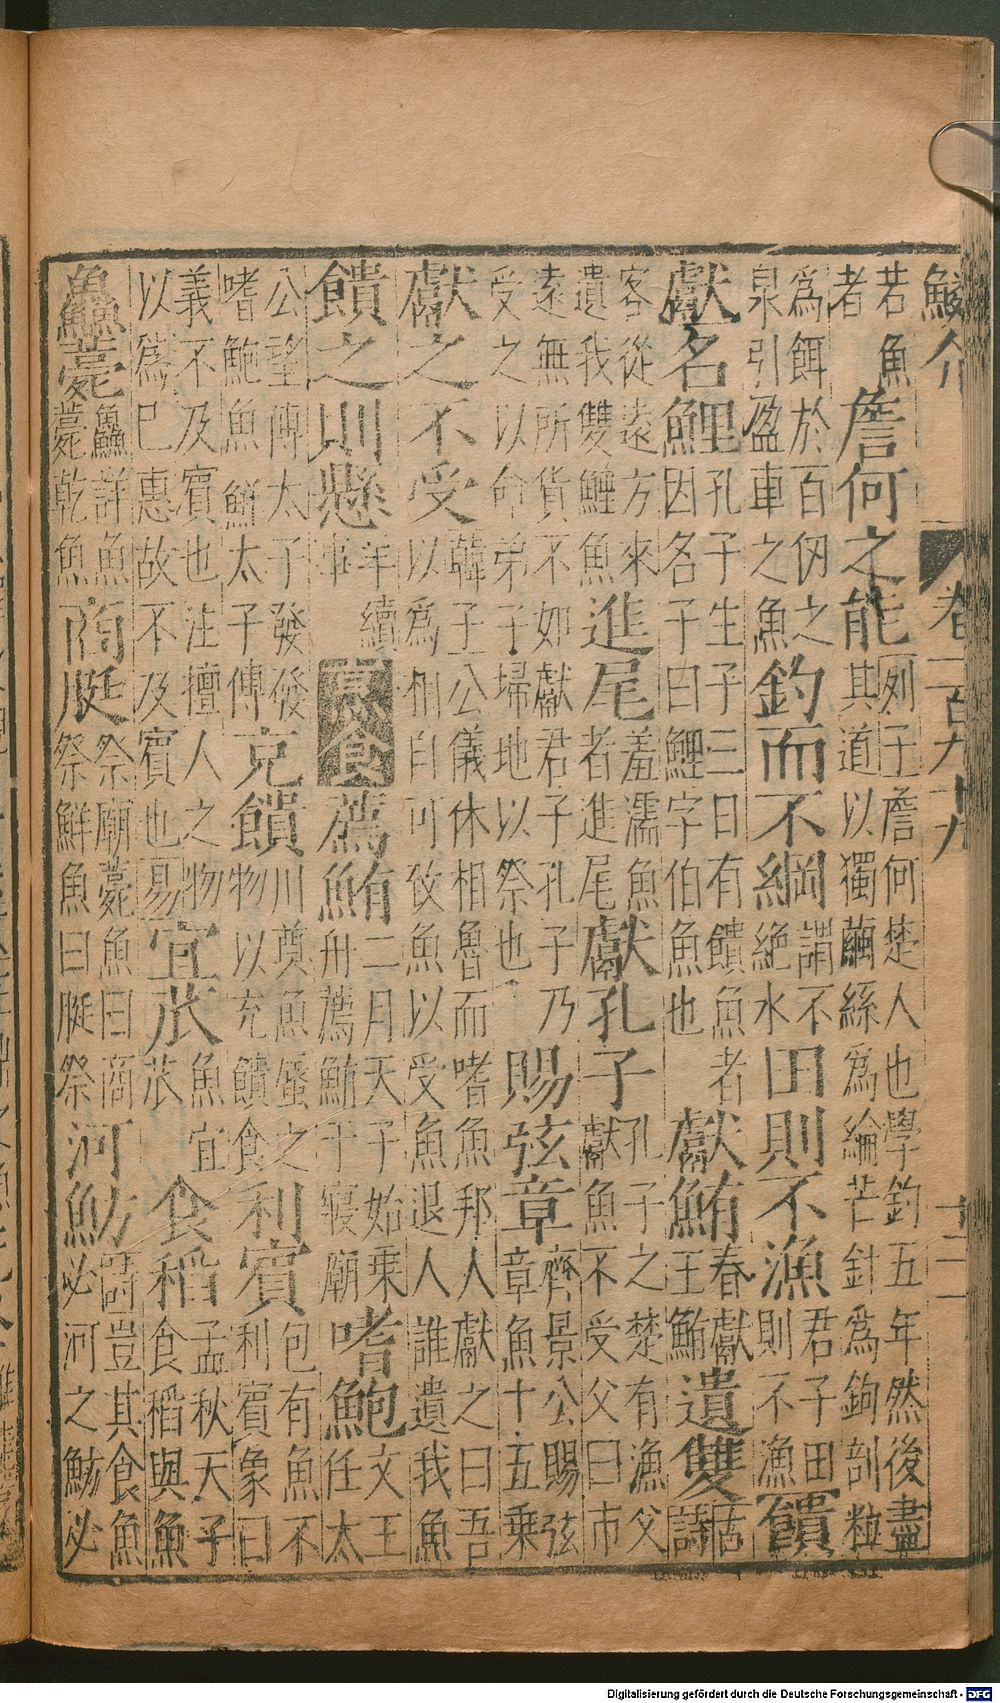 鱗介 卷一百九十九 十二
若魚者 詹何之能 列子詹何楚人也學釣五年然後盡其道以獨繭絲為綸芒針為鉤剖粒
為餌於百仞之泉引盈車之魚 釣而不綱 謂不絕水 田則不漁 君子田則不漁 饋
獻名鯉 孔子生子三日有饋魚者因名子曰鯉字伯魚也 獻鮪 春獻王鮪 遺雙 古詩
客從遠方來遺我雙鯉魚 進尾 羞濡魚者進尾 獻孔子 孔子之楚有漁父獻魚不受父曰市
遠無所貨不如獻君子孔子乃受之以命弟子埽地以祭也 賜弦章 齊景公賜弦章魚十五乗
獻之不受 韓子公儀休相魯而嗜魚邦人獻之曰吾以為相自可致魚以受魚退人誰遺我魚
饋之則懸 羊續事 烹食 薦鮪 二月天子始乗舟薦鮪于寢廟 嗜鮑 文王任太
公望傅太子發發嗜鮑魚鮮太子傅 充饋 川奠魚蜃之物以充饋食 利賓 包有魚不利賓象曰
義不及賓也注擅人之物以為已惠故不及賓也易 宜苽 魚宜苽 食稻 孟秋天子食稻與魚
鱻薨 鱻詳魚薨乾魚 商脡 祭廟薨魚曰商祭鮮魚曰脡祭 河魴 詩豈其食魚必河之魴必
Digitalisierung gefördert durch die Deutsche Forschungsgemeinschaft - DFG